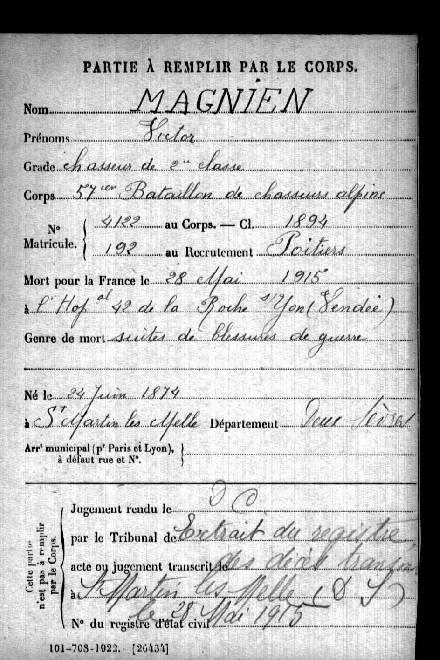 PARTIE À REMPLIR PAR LE CORPS.
Nom MAGNIEN
Prénoms Victor
Grade chasseur de 2e classe
Corps 57em Bataillon de chasseurs alpins
N° Matricule. { 4122 au Corps. — Cl. 1894
192 au Recrutement Poitiers
Mort pour la France le 28 Mai 1915
à l'Hopal 42 de la Roche s/Yon (Vendée)
Genre de mort suites de blessures de guerre
Né le 24 Juin 1874
à St Martin les Melle Département Deux Sèvres
Arrt municipal (pr Paris et Lyon), à défaut rue et N°. }
Cette partie n'est pas à remplir par le Corps.
Jugement rendu le D C
par le Tribunal de Extrait du registre
acte ou jugement transcrit le des décès
à St Martin les Melle (D S)
le 28 Mai 1915
N° du registre d'état civil
101-708-1922. [26434]